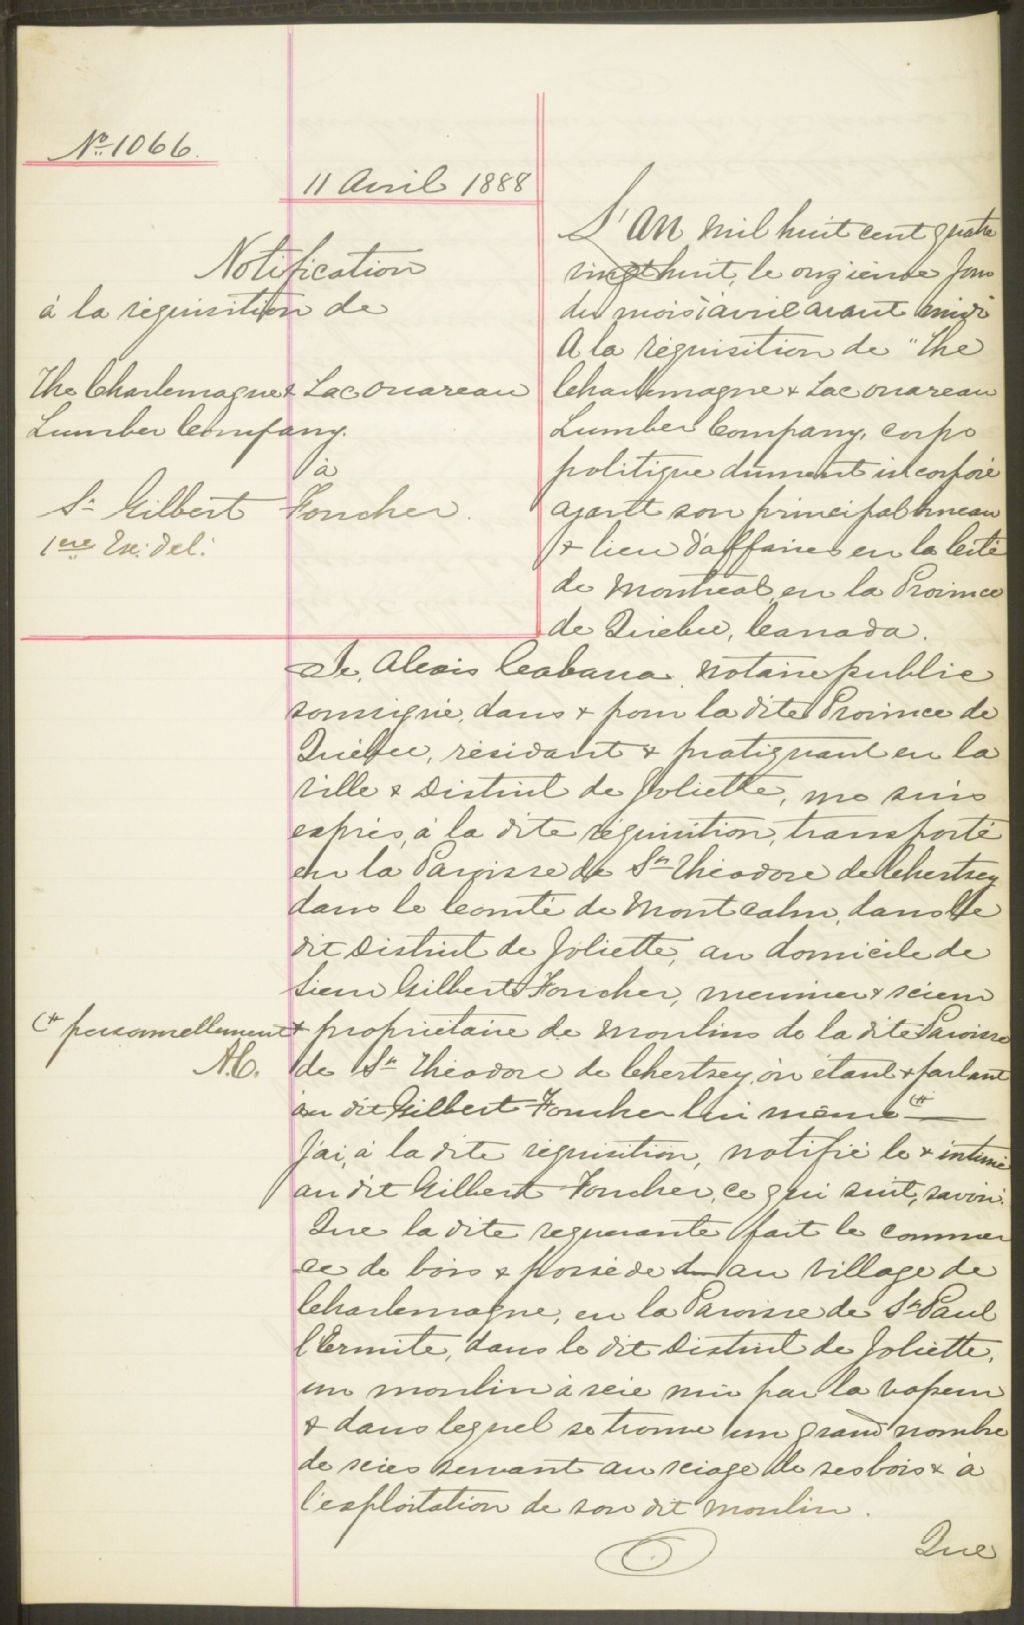 No. 1066.
11 Avril 1888
Notification
à la réquisition de
The Charlemagne & Lac Ouareau
Lumber Company.
à
Sr. Gilbert Foucher.
1ere Ex. del.
L'an mil huit cent quatre
vingt huit, le onzième jour
du mois d'avril avant midi
A la réquisition de "The
Charlemagne & Lac Ouareau
Lumber Company, corps
politique dument incorporé
ayant son principal bureau
& lieu d'affaires en la Cité
de Montréal, en la Province
de Québec, Canada.
Je, Alexis Cabana, notaire public
soussigné, dans & pour la dite Province de
Québec, résidant & pratiquant en la
Ville & District de Joliette, me suis
exprès, à la dite réquisition, transporté
en la Paroisse de St. Théodore de Chertsey
dans le Comté de Montcalm, dans le
dit District de Joliette, au domicile de
Sieur Gilbert Foucher, meunier & scieur
& propriétaire de moulins de la dite Paroisse
(+ personnellement
A.C.
de St. Théodore de Chertsey, où étant & parlant
au dit Gilbert Foucher lui même (+
J'ai, à la dite réquisition, notifié le & intimé
au dit Gilbert Foucher, ce qui suit, savoir:
Que la dite requérante fait le commer
ce de bois & possède au village de
Charlemagne, en la Paroisse de St. Paul
l'Ermite, dans le dit District de Joliette,
un moulin à scie mu par la vapeur
& dans lequel se trouve un grand nombre
de scies servant au sciage de ses bois & à
l'exploitation de son dit moulin.
Que